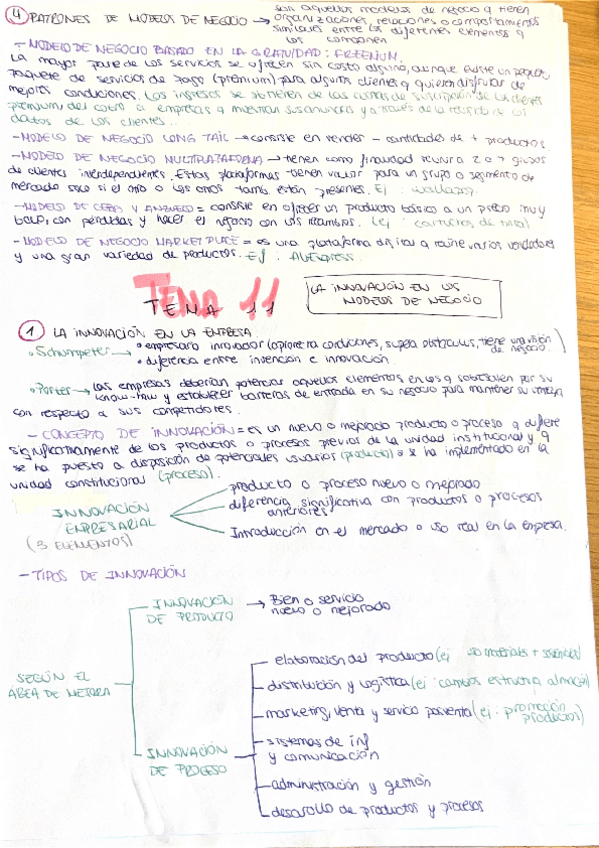 4 PATRONES DE MODELOS DE NEGOCIO → son aquellos modelos de negocio q tienen
organizaciones, relaciones o comportamientos
similares entre los diferentes elementos q
los componen
- MODELO DE NEGOCIO BASADO EN LA GRATUIDAD: FREENUM.
La mayor parte de los servicios se ofrecen sin costo alguno, aunque existe un pequeño
paquete de servicios de pago (premium) para algunos clientes q quieren disfrutar de
mejores condiciones. Los ingresos se obtienen de las cuotas de suscripción de los clientes
premium, del cobro a empresas q muestran sus anuncios y a través de la recogida de los
datos de los clientes...
- MODELO DE NEGOCIO LONG TAIL → consiste en vender - cantidades de + productos.
- MODELO DE NEGOCIO MULTIPLATAFORMA → tienen como finalidad reunir a 2 o + grupos
de clientes interdependientes. Estas plataformas tienen valor para un grupo o segmento de
mercado solo si el otro o los otros tamb. están presentes. Ej: wallapop.
- MODELO DE CEBO Y ANZUELO = consiste en ofrecer un producto básico a un precio muy
bajo, con pérdidas y hacer el negocio con los recambios. (ej: cartuchos de tinta)
- MODELO DE NEGOCIO MARKETPLACE = es una plataforma digital q reúne varios vendedores
y una gran variedad de productos. Ej: AliExpress.
TEMA 11
LA INNOVACIÓN EN LOS
MODELOS DE NEGOCIO
1 LA INNOVACIÓN EN LA EMPRESA
• Schumpeter → • empresario innovador (aprovecha condiciones, supera obstáculos, tiene una visión
de negocio)
• diferencia entre invención e innovación.
• Porter → las empresas deberían potenciar aquellos elementos en los q sobresalen por su
know-how y establecer barreras de entrada en su negocio para mantener su ventaja
con respecto a sus competidores.
- CONCEPTO DE INNOVACIÓN = es un nuevo o mejorado producto o proceso q difiere
significativamente de los productos o procesos previos de la unidad institucional y q
se ha puesto a disposición de potenciales usuarios (producto) o se ha implementado en la
unidad constitucional (proceso).
INNOVACIÓN
EMPRESARIAL
(3 ELEMENTOS)
producto o proceso nuevo o mejorado
diferencia significativa con productos o procesos
anteriores
Introducción en el mercado o uso real en la empresa.
- TIPOS DE INNOVACIÓN
SEGÚN EL
ÁREA DE MEJORA
INNOVACIÓN
DE PRODUCTO
→ Bien o servicio
nuevo o mejorado
INNOVACIÓN
DE PROCESO
elaboración del producto (ej materiales + sostenibles)
distribución y logística (ej: cambios estructura almacén)
marketing, venta y servicio posventa (ej: promoción
productos)
sistemas de inf
y comunicación
administración y gestión
desarollo de productos y procesos